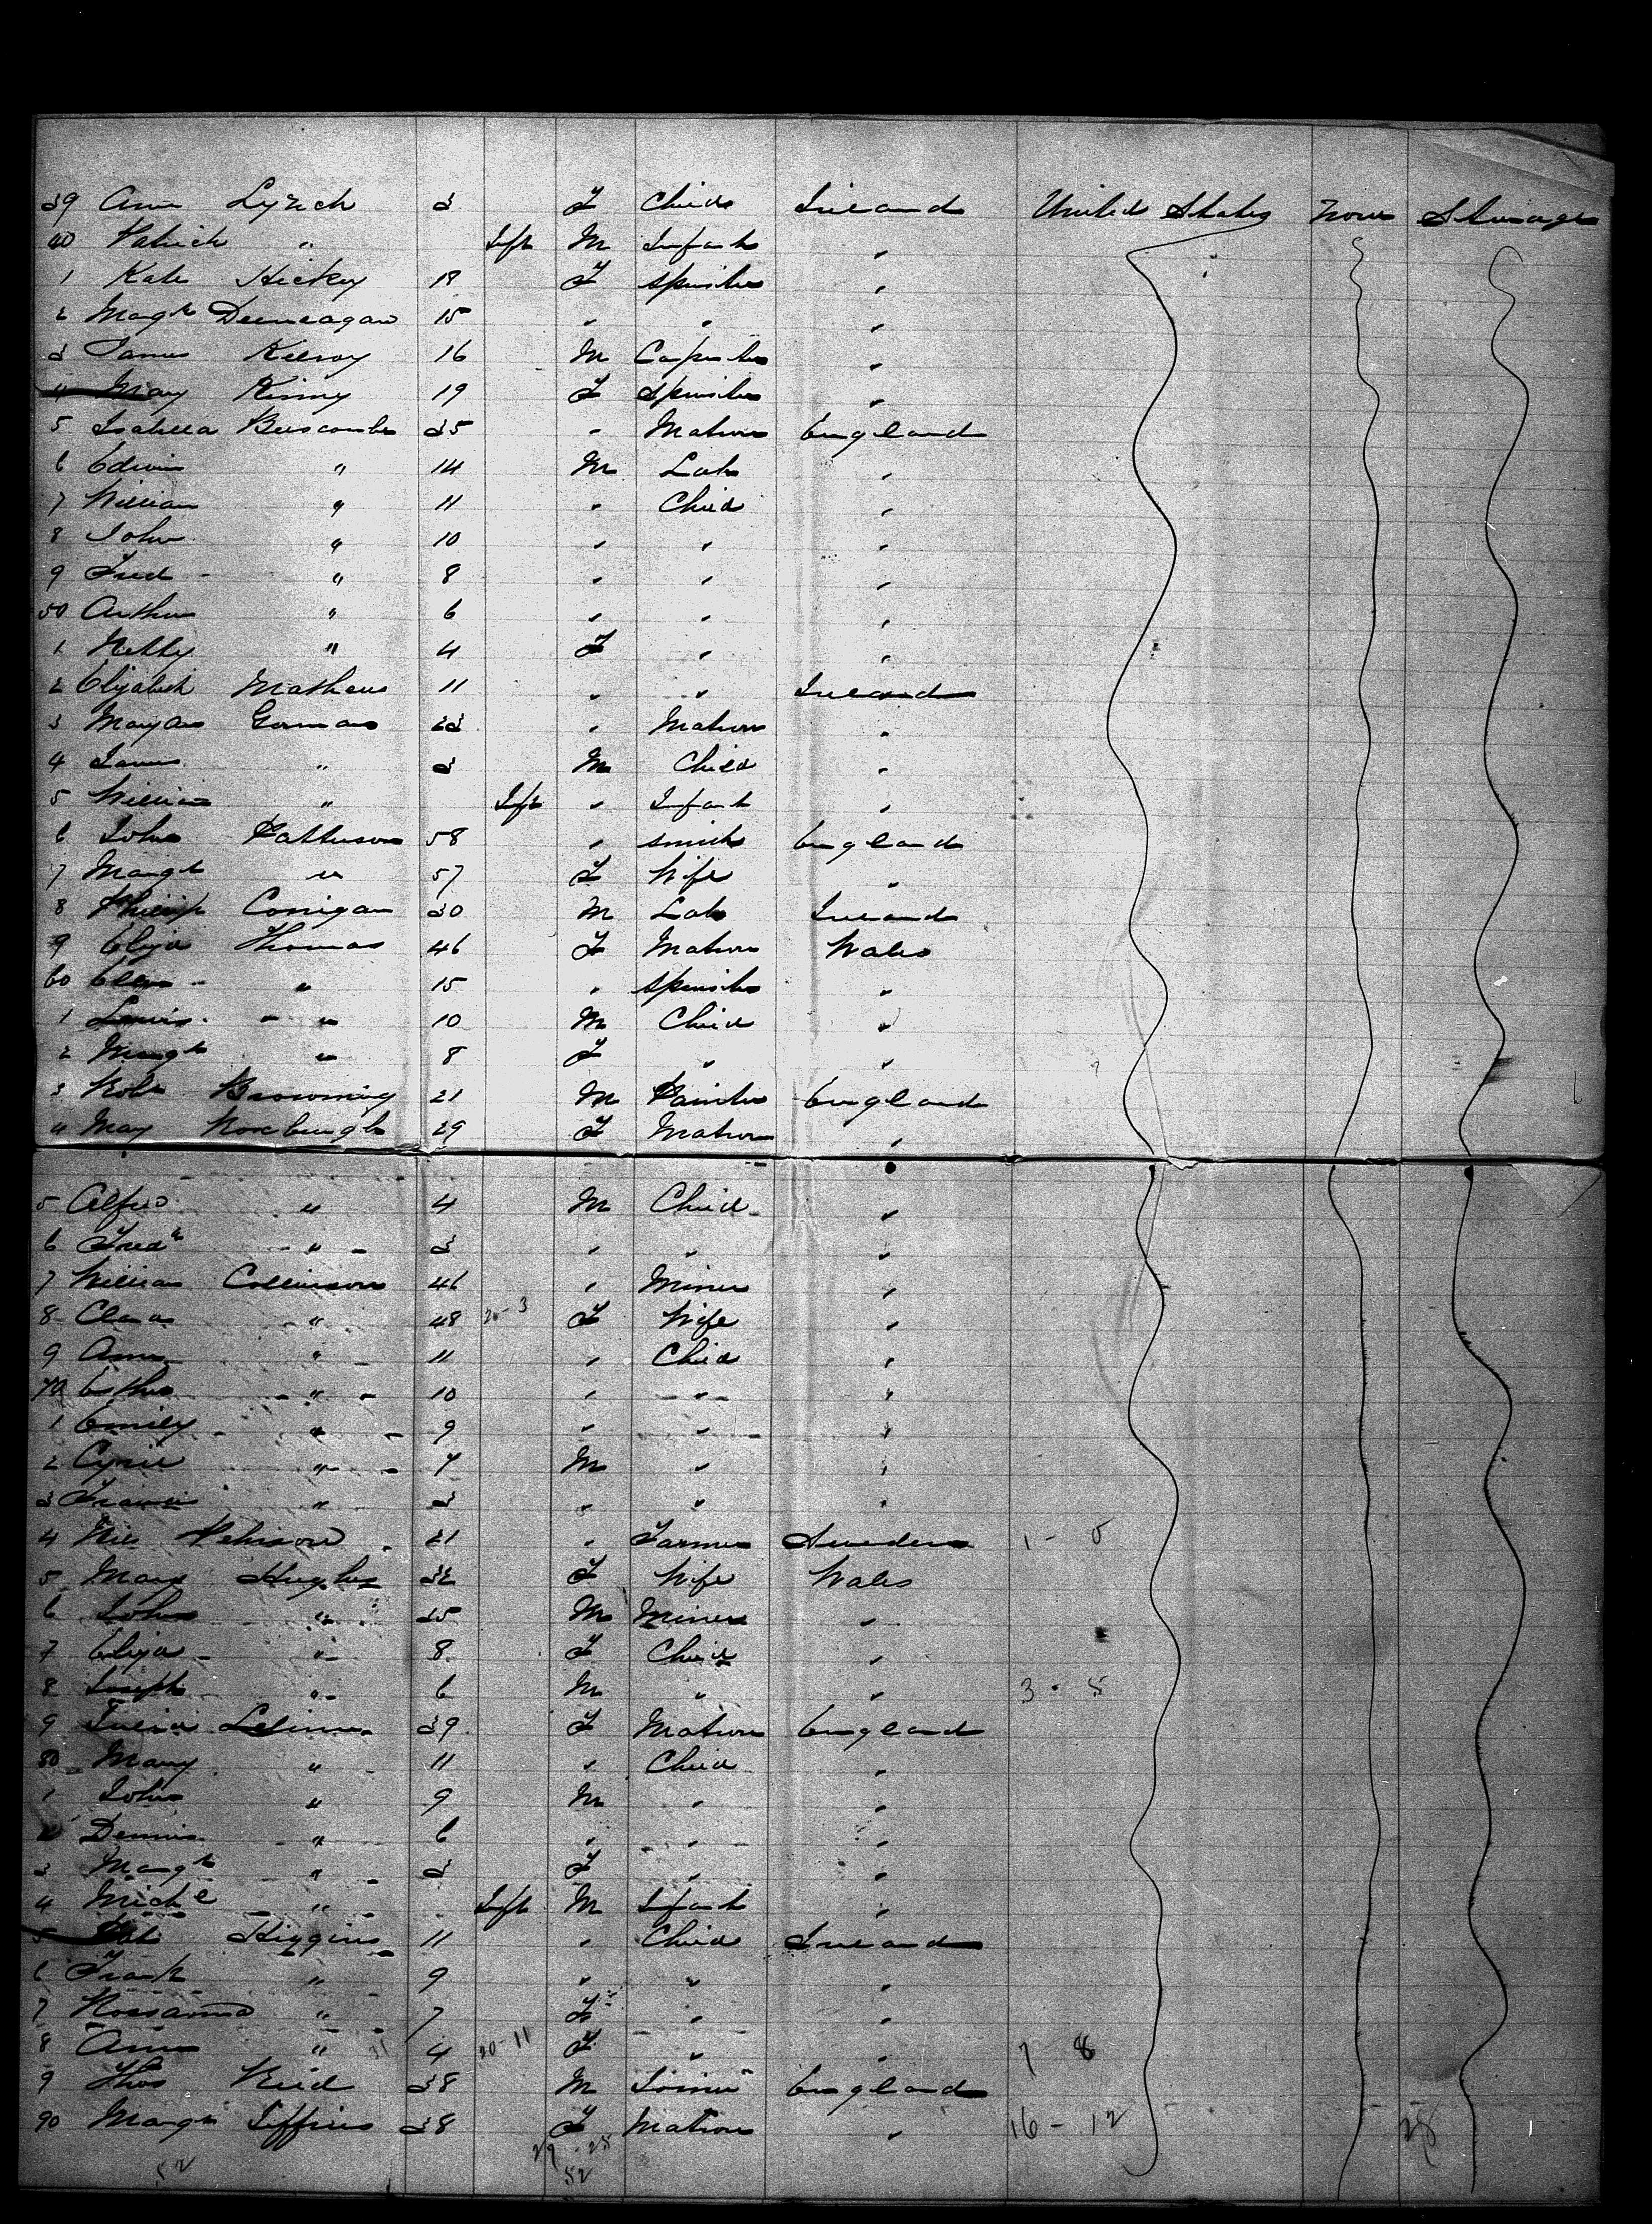 39 Ann Lynch 3 F Child Ireland United States None Steerage
40 Patrick " Inft M Infant "
1 Kate Hickey 18 F Spinster "
2 Magt 15 " " "
3 James Kilroy 16 M Carpenter "
4 Mary Kinny 19 F Spinster "
5 Isabella Buscombe 35 " Matron England
6 Edwin " 14 M Lab "
7 William " 11 " Child "
8 John " 10 " " "
9 Fred " 8 " " "
50 Arthur " 6 " " "
1 Netty " 4 F " "
2 Elizabeth Mathews 11 " " Ireland
3 Maryan Gorman 23 " Matron "
4 James " 3 M Child "
5 William " Inft " Infant "
6 John Patterson 58 " Smith England
7 Margt " 57 F Wife "
8 Philip Corrigan 30 M Lab Ireland
9 Eliza Thomas 46 F Matron Wales
60 Ellen " 15 " Spinster "
1 Lewis " 10 M Child "
2 Margt " 8 F " "
3 Robt Browning 21 M Painter England
4 May Roxburgh 29 F Matron "
5 Alfred " 4 M Child "
6 Fredk " 3 " " "
7 William Collinson 46 " Miner "
8 Clara " 48 20-3 F Wife "
9 Ann " 11 " Child "
70 Esther " 10 " " "
1 Emily " 9 " " "
2 Cyril " 7 M " "
3 Francis " 3 " " "
4 Nils Pehrson 21 " Farmer Sweden 1 - 5
5 Mary Hughes 32 F Wife Wales
6 John " 35 M Miner "
7 Eliza " 8 F Child "
8 Joseph " 6 M " " 3 - 5
9 Julia 39 F Matron England
80 Mary " 11 " Child "
1 John " 9 M " "
2 Dennis " 6 " " "
3 Margt " 3 F " "
4 Michl " Inft M Infant "
5 Higgins 11 " Child Ireland
6 Frank " 9 " " "
7 Rossanna " 7 F " "
8 Ann " 4 20-11 F " " 7 8
9 Thos Reid 38 M Joiner England
90 Margt Jeffries 38 F Matron " 16 - 12 28
52 52